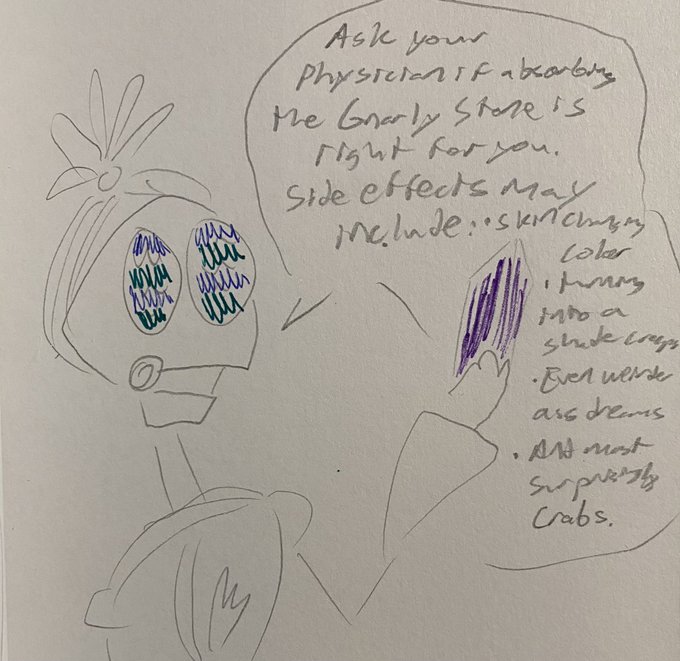 Ask your
Physician if absorbing
the Gnarly Stone is
right for you.
Side effects may
include: • skin changing
color
• turning
into a
shade
• Even weirder
ass dreams
• And most
surprisingly
Crabs.